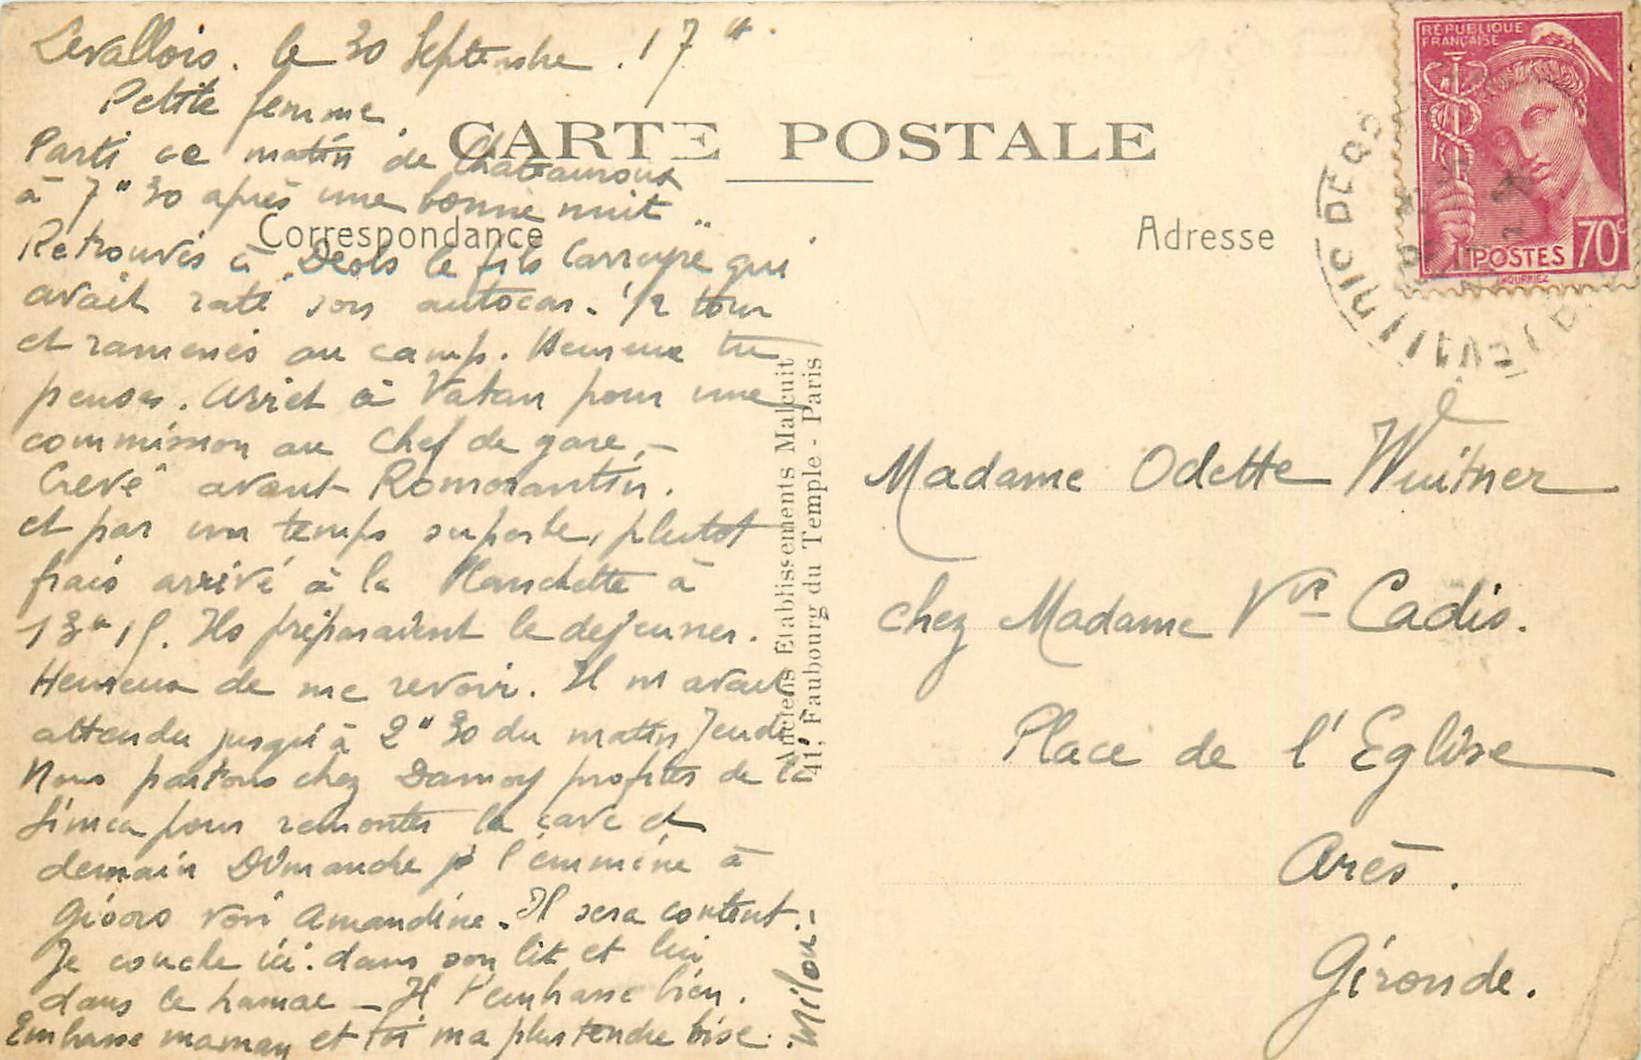 Levallois. le 30 Septembre. 17 h.
Petite femme.
Parti ce matin de Chateauroux
à 7h 30 après une bonne nuit..
Retrouvés à Deols le fils Carruyre qui
avait raté son autocar. 1/2 tour
et ramenés au camp. Heureux tu
penses. Arret à Vatan pour une
commission au Chef de gare. -
Crevé avant Romorantin.
et par un temps superbe, plutot
frais arrivé à la Planchette à
13h 15. Ils préparaient le dejeuner.
Heureux de me revoir. Il m avait
attendu jusqu'à 2h 30 du matin Jeudi.
Nous partons chez Damoy profiter de la
Simca pour remonter la cave et
demain Dimanche je l'emmène à
Gisors voir Amandine. Il sera content.
Je couche ici. dans son lit et lui
dans le hamac - Il t'embrasse bien.
Embrasse maman et toi ma plus tendre bise.
Milou
CARTE POSTALE
Correspondance
Adresse
Anciens Etablissements Malcuit
41, Faubourg du Temple - Paris
RÉPUBLIQUE
FRANÇAISE
POSTES 70c
Madame Odette Wuitner
chez Madame Vve Cadis.
Place de l'Eglise
Arès.
Gironde.